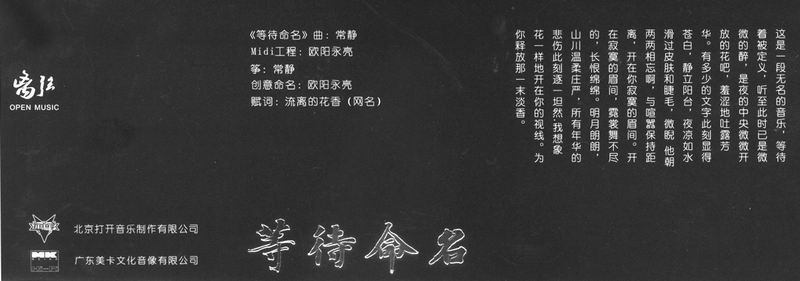 OPEN MUSIC
《等待命名》曲：常静
Midi工程：欧阳永亮
筝：常静
创意命名：欧阳永亮
赋词：流离的花香（网名）
这是一段无名的音乐，等待
着被定义，听至此时已是微
微的醉，是夜的中央微微开
放的花吧，羞涩地吐露芳
华。有多少的文字此刻显得
苍白，静立阳台，夜凉如水
滑过皮肤和睫毛，微睨 他朝
两两相忘啊，与喧嚣保持距
离，开在你寂寞的眉间。开
在寂寞的眉间，霓裳舞不尽
的，长恨绵绵。明月朗朗，
山川温柔庄严，所有年华的
悲伤此刻逐一坦然 我想象
花一样地开在你的视线。为
你释放那一末淡香。
北京打开音乐制作有限公司
广东美卡文化音像有限公司
等待命名